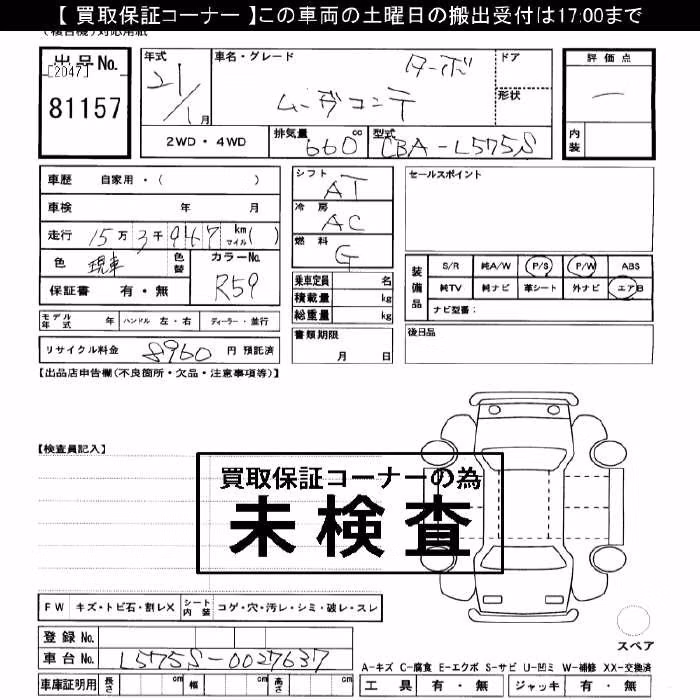 【 買取保証コーナー 】この車両の土曜日の搬出受付は17:00まで
出品No.
[2047]
81157
年式 21/1月
車名・グレード ターボ
ムーヴコンテ
ドア
形状
評価点
—
内装
2WD・4WD
排気量 660 cc
型式 CBA-L575S
車歴 自家用・( )
車検 年 月
走行 15万3千947 km マイル( )
色 現車 色替
カラーNo. R59
保証書 有・無
シフト AT
冷房 AC
燃料 G
セールスポイント
装備品
S/R 純A/W P/S P/W ABS
純TV 純ナビ 革シート 外ナビ エアB
ナビ型番:
乗車定員 名
積載量 kg
総重量 kg
モデル年式 年 ハンドル 左・右 ディーラー・並行
書類期限
月 日
後日品
リサイクル料金 8960 円 預託済
【出品店申告欄(不良箇所・欠品・注意事項等)】
【検査員記入】
買取保証コーナーの為
未検査
FW キズ・トビ石・割レX シート内装 コゲ・穴・汚レ・シミ・破レ・スレ
スペア
登録No.
車台No. L575S-0027637
A-キズ C-腐食 E-エクボ S-サビ U-凹ミ W-補修 XX-交換済
車庫証明用 長さ cm 幅 cm 高さ cm
工具 有・無 ジャッキ 有・無